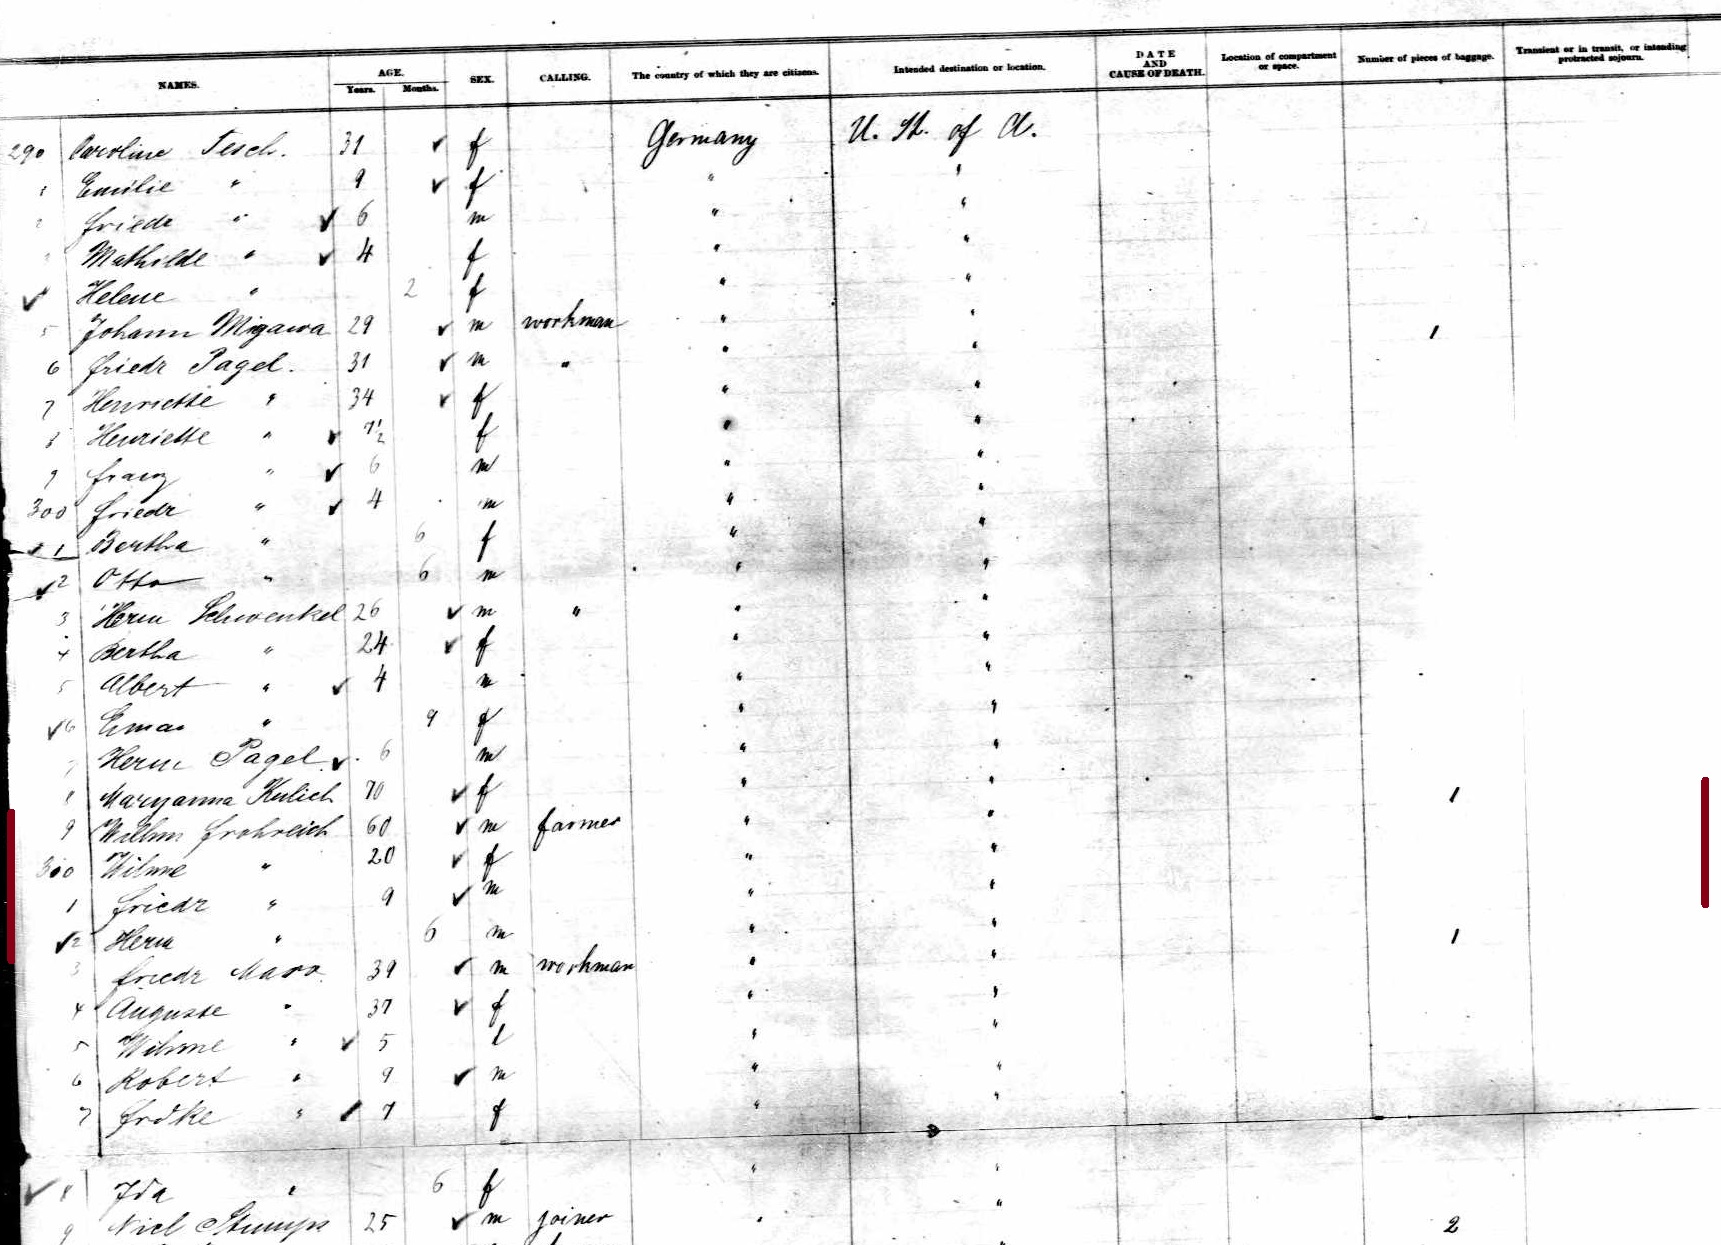 NAMES. AGE. Years. Months. SEX. CALLING. The country of which they are citizens. Intended destination or location. DATE AND CAUSE OF DEATH. Location of compartment or space. Number of pieces of baggage. Transient or in transit, or intending protracted sojourn.
290 Caroline Tesch. 31 ✓ f Germany U. St. of A.
1 Emilie " 9 ✓ f " "
2 Friedr " ✓ 6 m " "
Mathilde " ✓ 4 f " "
✓ Helene " 2 f " "
5 Johann Migawa 29 ✓ m workman " " 1
6 Friedr Pagel. 31 ✓ m " " "
7 Henriette " 34 ✓ f " "
8 Henriette " ✓ 7½ f " "
9 Franz " ✓ 6 m " "
300 Friedr " ✓ 4 m " "
✓ 1 Bertha " 6 f " "
✓ 2 Otto " 6 m " "
3 Herm Schwenkel 26 ✓ m " " "
4 Bertha " 24 ✓ f " "
5 Albert " ✓ 4 m " "
✓ 6 Emma " 9 f " "
7 Herm Pagel ✓ 6 m " "
8 Maryanna Kulich 70 ✓ f " " 1
9 Wilhm Frohreich 60 ✓ m farmer " "
300 Wilme " 20 ✓ f " "
1 Friedr " 9 ✓ m " "
✓ 2 Herm " 6 m " " 1
3 Friedr 39 ✓ m workman " "
4 Auguste " 37 ✓ f " "
5 Wilme " ✓ 5 f " "
6 Robert " 9 ✓ m " "
7 Frdke " ✓ 7 f " "
✓ 8 Ida " 6 f " "
9 25 ✓ m joiner " " 2